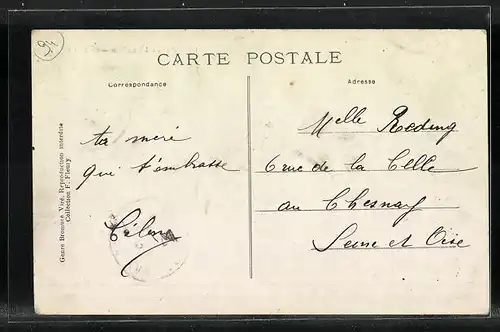 CARTE POSTALE
Correspondance
Adresse
ta meré
qui t'embrasse
Melle Roeding
6 rue de la Celle
au Chesnay
Seine et Oise
Genre Bromure Vint. Reproduction interdite
Collection F. Fleury